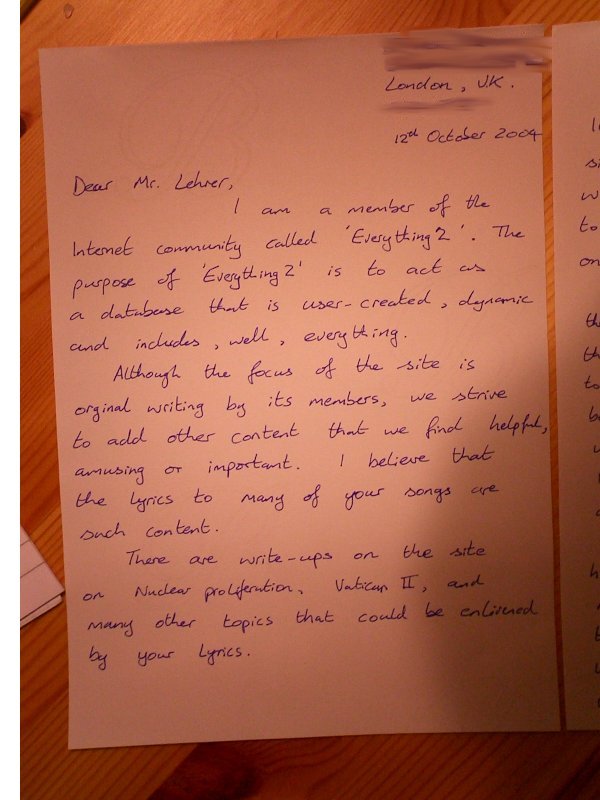 London, U.K.
12th October 2004
Dear Mr. Lehrer,
I am a member of the
Internet community called 'Everything2'. The
purpose of 'Everything2' is to act as
a database that is user-created, dynamic
and includes, well, everything.
Although the focus of the site is
orginal writing by its members, we strive
to add other content that we find helpful,
amusing or important. I believe that
the lyrics to many of your songs are
such content.
There are write-ups on the site
on Nuclear proliferation, Vatican II, and
many other topics that could be enlivened
by your lyrics.